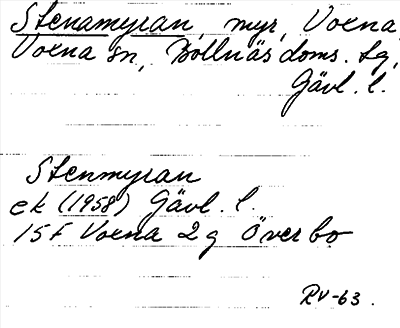 Stenamyran, myr, Voxna
Voxna sn, Bollnäs doms. tg,
Gävl. l.
Stenmyran
ek (1958) Gävl. l.
15f Voxna 2g Överbo
RV-63.